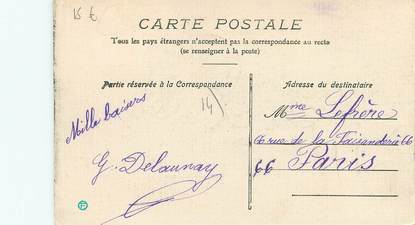 15 €
CARTE POSTALE
Tous les pays étrangers n'acceptent pas la correspondance au recto
(se renseigner à la poste)
Partie réservée à la Correspondance
Adresse du destinataire
Mille baisers
G. Delaunay
Mme Lefrère
66 rue de la Faisanderie 66
66 Paris